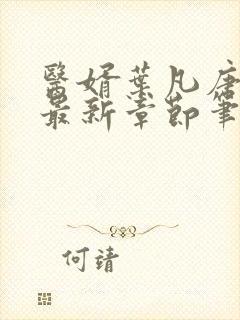 醫婿葉凡唐
最新章節筆
何靖